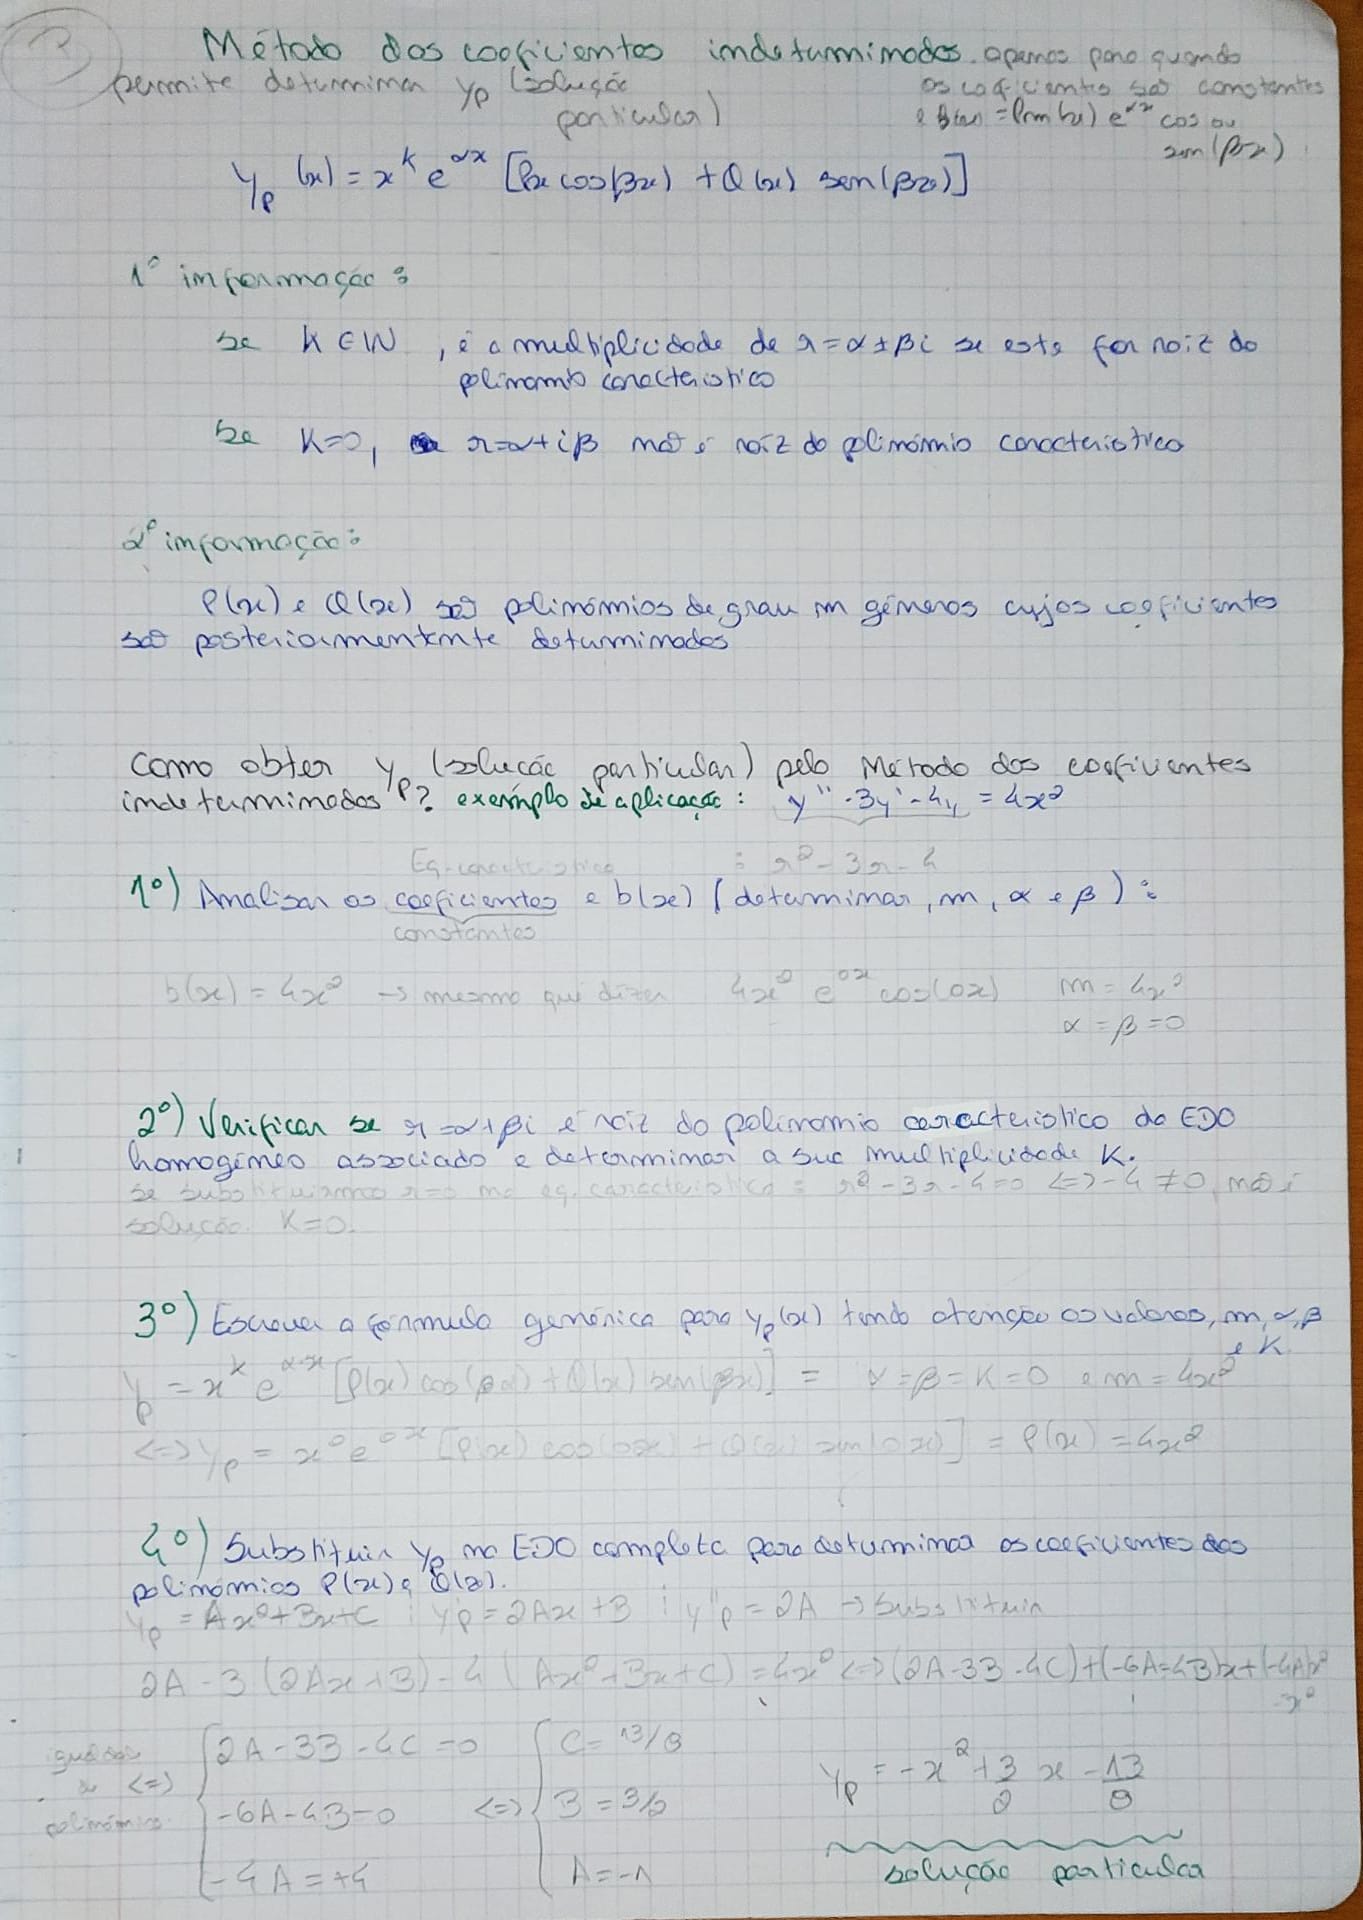 Método dos coeficientes indeterminados. apenas para quando
permite determinar yp (solução particular)
os coeficientes são constantes
e B(x) = Pm(x) e^αx cos ou
sen(βx)
yp(x) = x^k e^αx [Px cos(βx) + Q(x) sen(βx)]
1º informação:
se K ∈ IN, é a multiplicidade de r = α ± βi se este for raiz do
polinomio característico
Se K=0, r=α+iβ não é raiz do polinómio característico
2º informação:
P(x) e Q(x) são polinómios de grau m géneros cujos coeficientes
são posteriormentente determinados
Como obter yp (solução particular) pelo Método dos coefivientes
indeterminados? exemplo de aplicação: y'' - 3y' - 4y = 4x²
Eq. característica : r² - 3r - 4
1º) Analisar os coeficientes e b(x) (determinar, m, α e β):
constantes
b(x) = 4x² → mesmo que dizer 4x² e^0x cos(0x) m = 4x²
α = β = 0
2º) Verificar se r = α + βi é raiz do polinomio característico do EDO
homogéneo associado e determinar a sua multiplicidade K.
se substituirmos r=0 na eq. característica: r² - 3r - 4 = 0 <=> -4 ≠ 0, não é
solução. K=0.
3º) Escrever a fórmula genérica para yp(x) tendo atenção os valores, m, α, β
e K
yp = x^k e^α·x [P(x) cos(βx) + Q(x) sen(βx)] = α = β = K = 0 e m = 4x²
<=> yp = x^0 e^0x [P(x) cos(0x) + Q(x) sen(0x)] = P(x) = 4x²
4º) Substituir yp na EDO completa para determinar os coeficientes dos
polinómios P(x) e Q(x).
yp = Ax² + Bx + C ; y'p = 2Ax + B ; y''p = 2A → Substituir
2A - 3(2Ax + B) - 4(Ax² + Bx + C) = 4x² <=> (2A - 3B - 4C) + (-6A=4B)x + (-4A)x²
= x²
igualdade
de <=>
polinómios
{ 2A - 3B - 4C = 0
-6A - 4B = 0
-4A = +4
<=> { C = 13/8
B = 3/2
A = -1
yp = -x² + 3/2 x - 13/8
solução particular